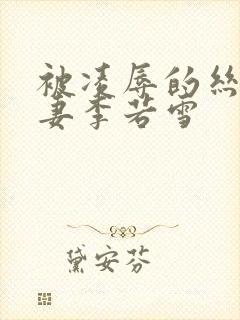 被凌辱的丝
妻李若雪
黛安芬